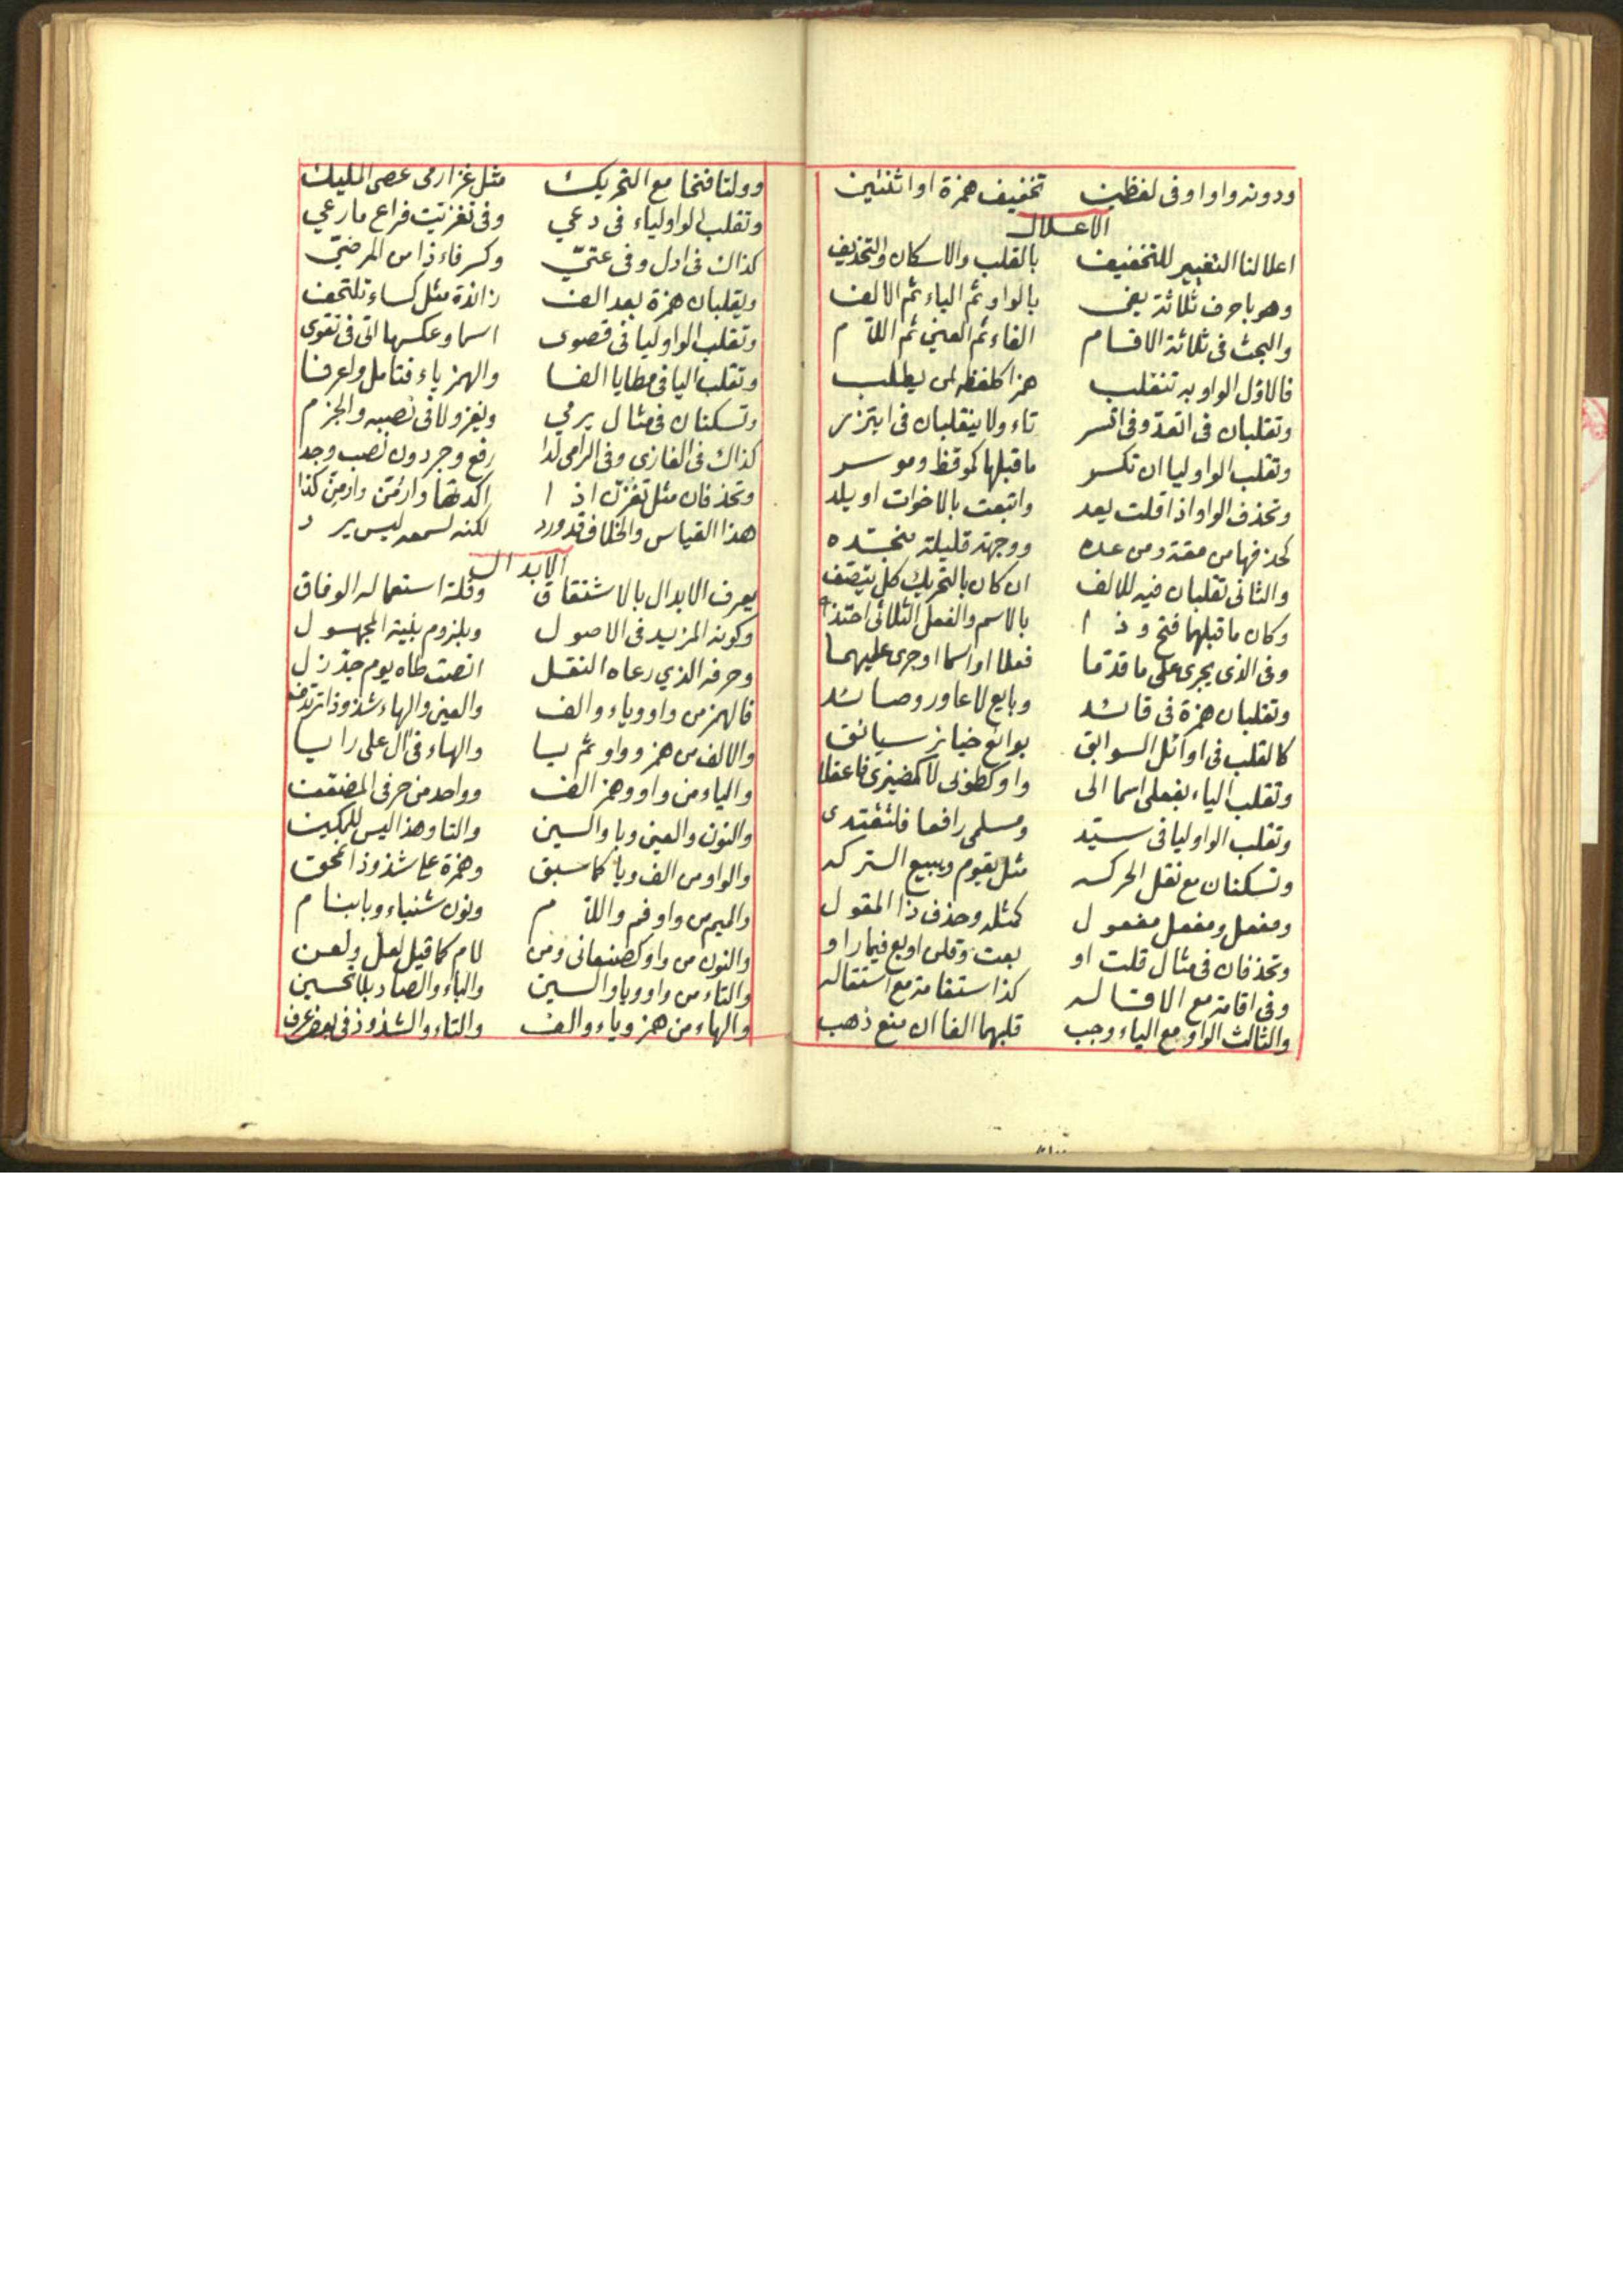 ودونه واوا وفى لفظين تخفيف همزة او اثنتين
الاعلال
اعلالنا التغيير للتخفيف بالقلب والاسكان والتحذيف
وهو باحرف ثلاثة يفى بالواو ثم الياء ثم الالف
والبحث فى ثلاثة الاقسام الفاء ثم العين ثم اللام
فالاول الواو به تنقلب همزا كلفظه لمن يطلب
وتقلبان فى اتعد وفى اتسر تاء ولا ينقلبان فى ايتزر
وتقلب الواو ليا ان تكسر ما قبلها كموقظ وموسر
وتحذف الواو اذا قلت يعد واتبعت بالاخوات او يلد
كحذفها من مقة ومن عده ووجهة قليلة
والثانى تقلبان فيه للالف ان كان بالتحريك كل يتصف
وكان ما قبلها فتح وذا بالاسم والفعل الثلاثى احتذا
وفى الذى يجرى على ما قدما فعلا او اسما او جرى عليهما
وتقلبان همزة فى قائد وبايع لا عاور وصائد
كالقلب فى اوائل السوابق بوائع خيائر سيائق
وتقلب الياء بفعلى اسما الى واو كطوبى لا كضيزى فاعقلا
وتقلب الواو ليا فى سيد ومسلمى رافعا فلتقتدى
وتسكنان مع نقل الحركه مثل يقوم ويبيع التركه
ومفعل ومفعل مفعول كمثله وحذف ذا المقول
وتحذفان فى مثال قلت او بعت وقلن او بع فيما راو
وفى اقامة مع الاقاله كذا استقامة مع استقاله
والثالث الواو مع الياء وجب قلبهما الفا ان منع ذهب
وولتا فتحا مع التحريك مثل غزا رمى عصى المليك
وتقلب الواو لياء فى دعي وفى تغزيت فراع ما رعي
كذاك فى ادل وفى عتي وكسر فاء ذا من المرضي
ويقلبان همزة بعد الف زائدة مثل كساء تلتحف
وتقلب الواو ليا فى قصوى اسما وعكسها اتى فى تقوى
وتقلب اليا فى مطايا الفا والهمز ياء فتامل واعرفا
وتسكنان فى مثال يرمي ويغزو لا فى نصبه والجزم
كذاك فى الغازى وفى الرامى لدا رفع وجر دون نصب وجدا
وتحذفان مثل تغزن اذا وارمن كذا
هذا القياس والخلاف قد ورد لكنه لسمعه ليس يرد
الابدال
يعرف الابدال بالاشتقاق وقلة استعماله الوفاق
وكونه المزيد فى الاصول وبلزوم بنية المجهول
وحرفه الذي رعاه النقل انصت طاه يوم جد زل
فالهمز من واو وياء والف والعين والهاء شذوذا
والالف من همز وواو ثم يا والهاء فى آل على رايا
والياء من واو وهمز الف وواحد من حرفى المضعف
والنون والعين وبا والسين والتا وهذا ليس للمكين
والواو من الف ويا كما سبق وهمزة شذوذا
والميم من واو فم واللام ونون شنباء وبا بنام
والنون من واو كصنعانى ومن لام كما قيل لعل ولعن
والتاء من واو ويا والسين والباء والصاد بلا تحسين
والهاء من همز وياء والف والتاء والشذوذ فى بعض عرف